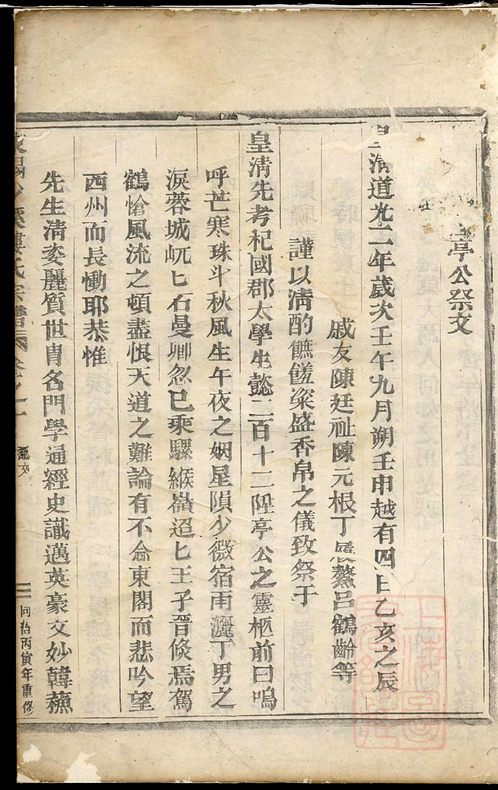 亭公祭文
皇清道光二年歲次壬午九月朔壬申越有四日乙亥之辰
戚友陳廷祉陳元根丁展鰲呂鶴齡等
謹以清酌饌饈粢盛香帛之儀致祭于
皇清先考杞國郡太學生懿二百十二陞亭公之靈柩前曰嗚
呼芒寒珠斗秋風生午夜之姻星隕少微宿雨灑丁男之
淚蓉城屹匕石曼卿忽已乘騾緱嶺迢匕王子晉倐焉駕
鶴愴風流之頓盡恨天道之難論有不侖東閣而悲吟望
西州而長慟耶恭惟
先生清姿麗質世胄名門學通經史識邁英豪文妙韓蘇
氏宗譜
同治丙寅年重修